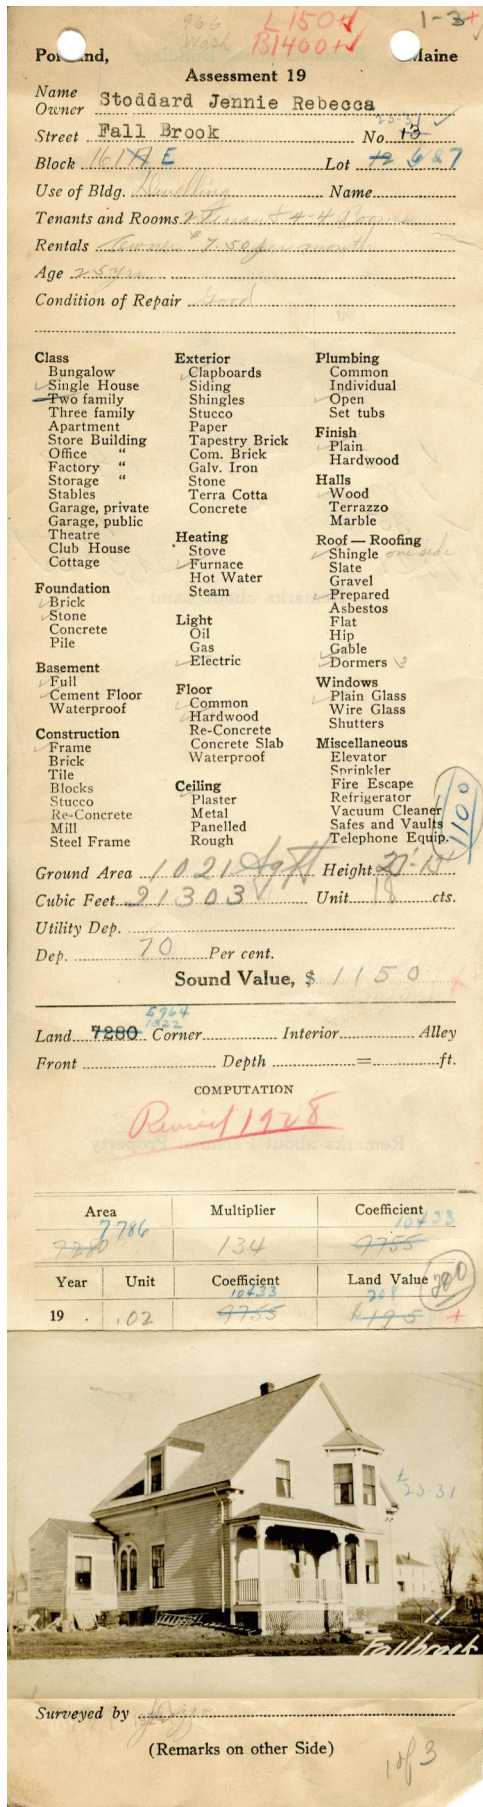 966 L 150+ 1-3+
Wash B1400+
Portland, Maine
Assessment 19
Name
Owner Stoddard Jennie Rebecca
23-31
Street Fall Brook No. 13
Block 161 A E Lot 12 6 & 7
Use of Bldg. Dwelling Name
Tenants and Rooms 2 Tenants 4-4 Rooms
Rentals (owner $7.50 per month
Age 25 yrs
Condition of Repair Good
Class
Bungalow
Single House
Two family
Three family
Apartment
Store Building
Office "
Factory "
Storage "
Stables
Garage, private
Garage, public
Theatre
Club House
Cottage
Foundation
Brick
Stone
Concrete
Pile
Basement
Full
Cement Floor
Waterproof
Construction
Frame
Brick
Tile
Blocks
Stucco
Re-Concrete
Mill
Steel Frame
Exterior
Clapboards
Siding
Shingles
Stucco
Paper
Tapestry Brick
Com. Brick
Galv. Iron
Stone
Terra Cotta
Concrete
Heating
Stove
Furnace
Hot Water
Steam
Light
Oil
Gas
Electric
Floor
Common
Hardwood
Re-Concrete
Concrete Slab
Waterproof
Ceiling
Plaster
Metal
Panelled
Rough
Plumbing
Common
Individual
Open
Set tubs
Finish
Plain
Hardwood
Halls
Wood
Terrazzo
Marble
Roof — Roofing
Shingle one side
Slate
Gravel
Prepared
Asbestos
Flat
Hip
Gable
Dormers 3
Windows
Plain Glass
Wire Glass
Shutters
Miscellaneous
Elevator
Sprinkler
Fire Escape
Refrigerator
Vacuum Cleaner
Safes and Vaults
Telephone Equip.
1100
Ground Area 1021 Sq ft Height
Cubic Feet 21303 Unit 18 cts.
Utility Dep.
Dep. 70 Per cent.
Sound Value, $ 1150
5964
1822
Land 7280 Corner Interior Alley
Front Depth = ft.
COMPUTATION
Revised 1928
Area Multiplier Coefficient
7786 10433
7280 134 9755
Year Unit Coefficient Land Value 200
10433 208
19 . .02 9755 $195 +
23-31
Fallbrook
Surveyed by
(Remarks on other Side)
1 of 3